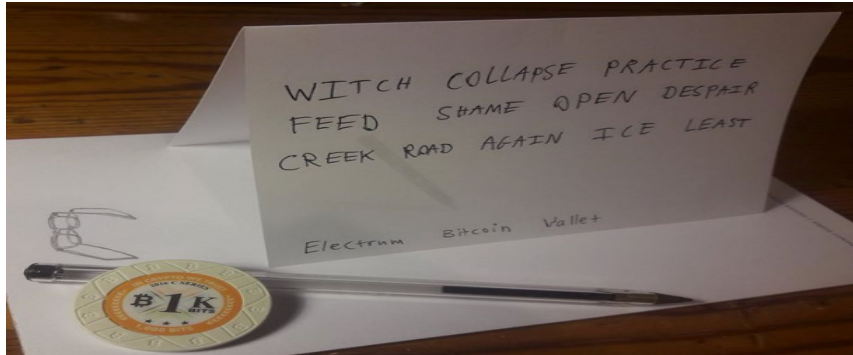 WITCH COLLAPSE PRACTICE
FEED SHAME OPEN DESPAIR
CREEK ROAD AGAIN ICE LEAST
Electrum Bitcoin Wallet
1K
BITS
1,000 BITS